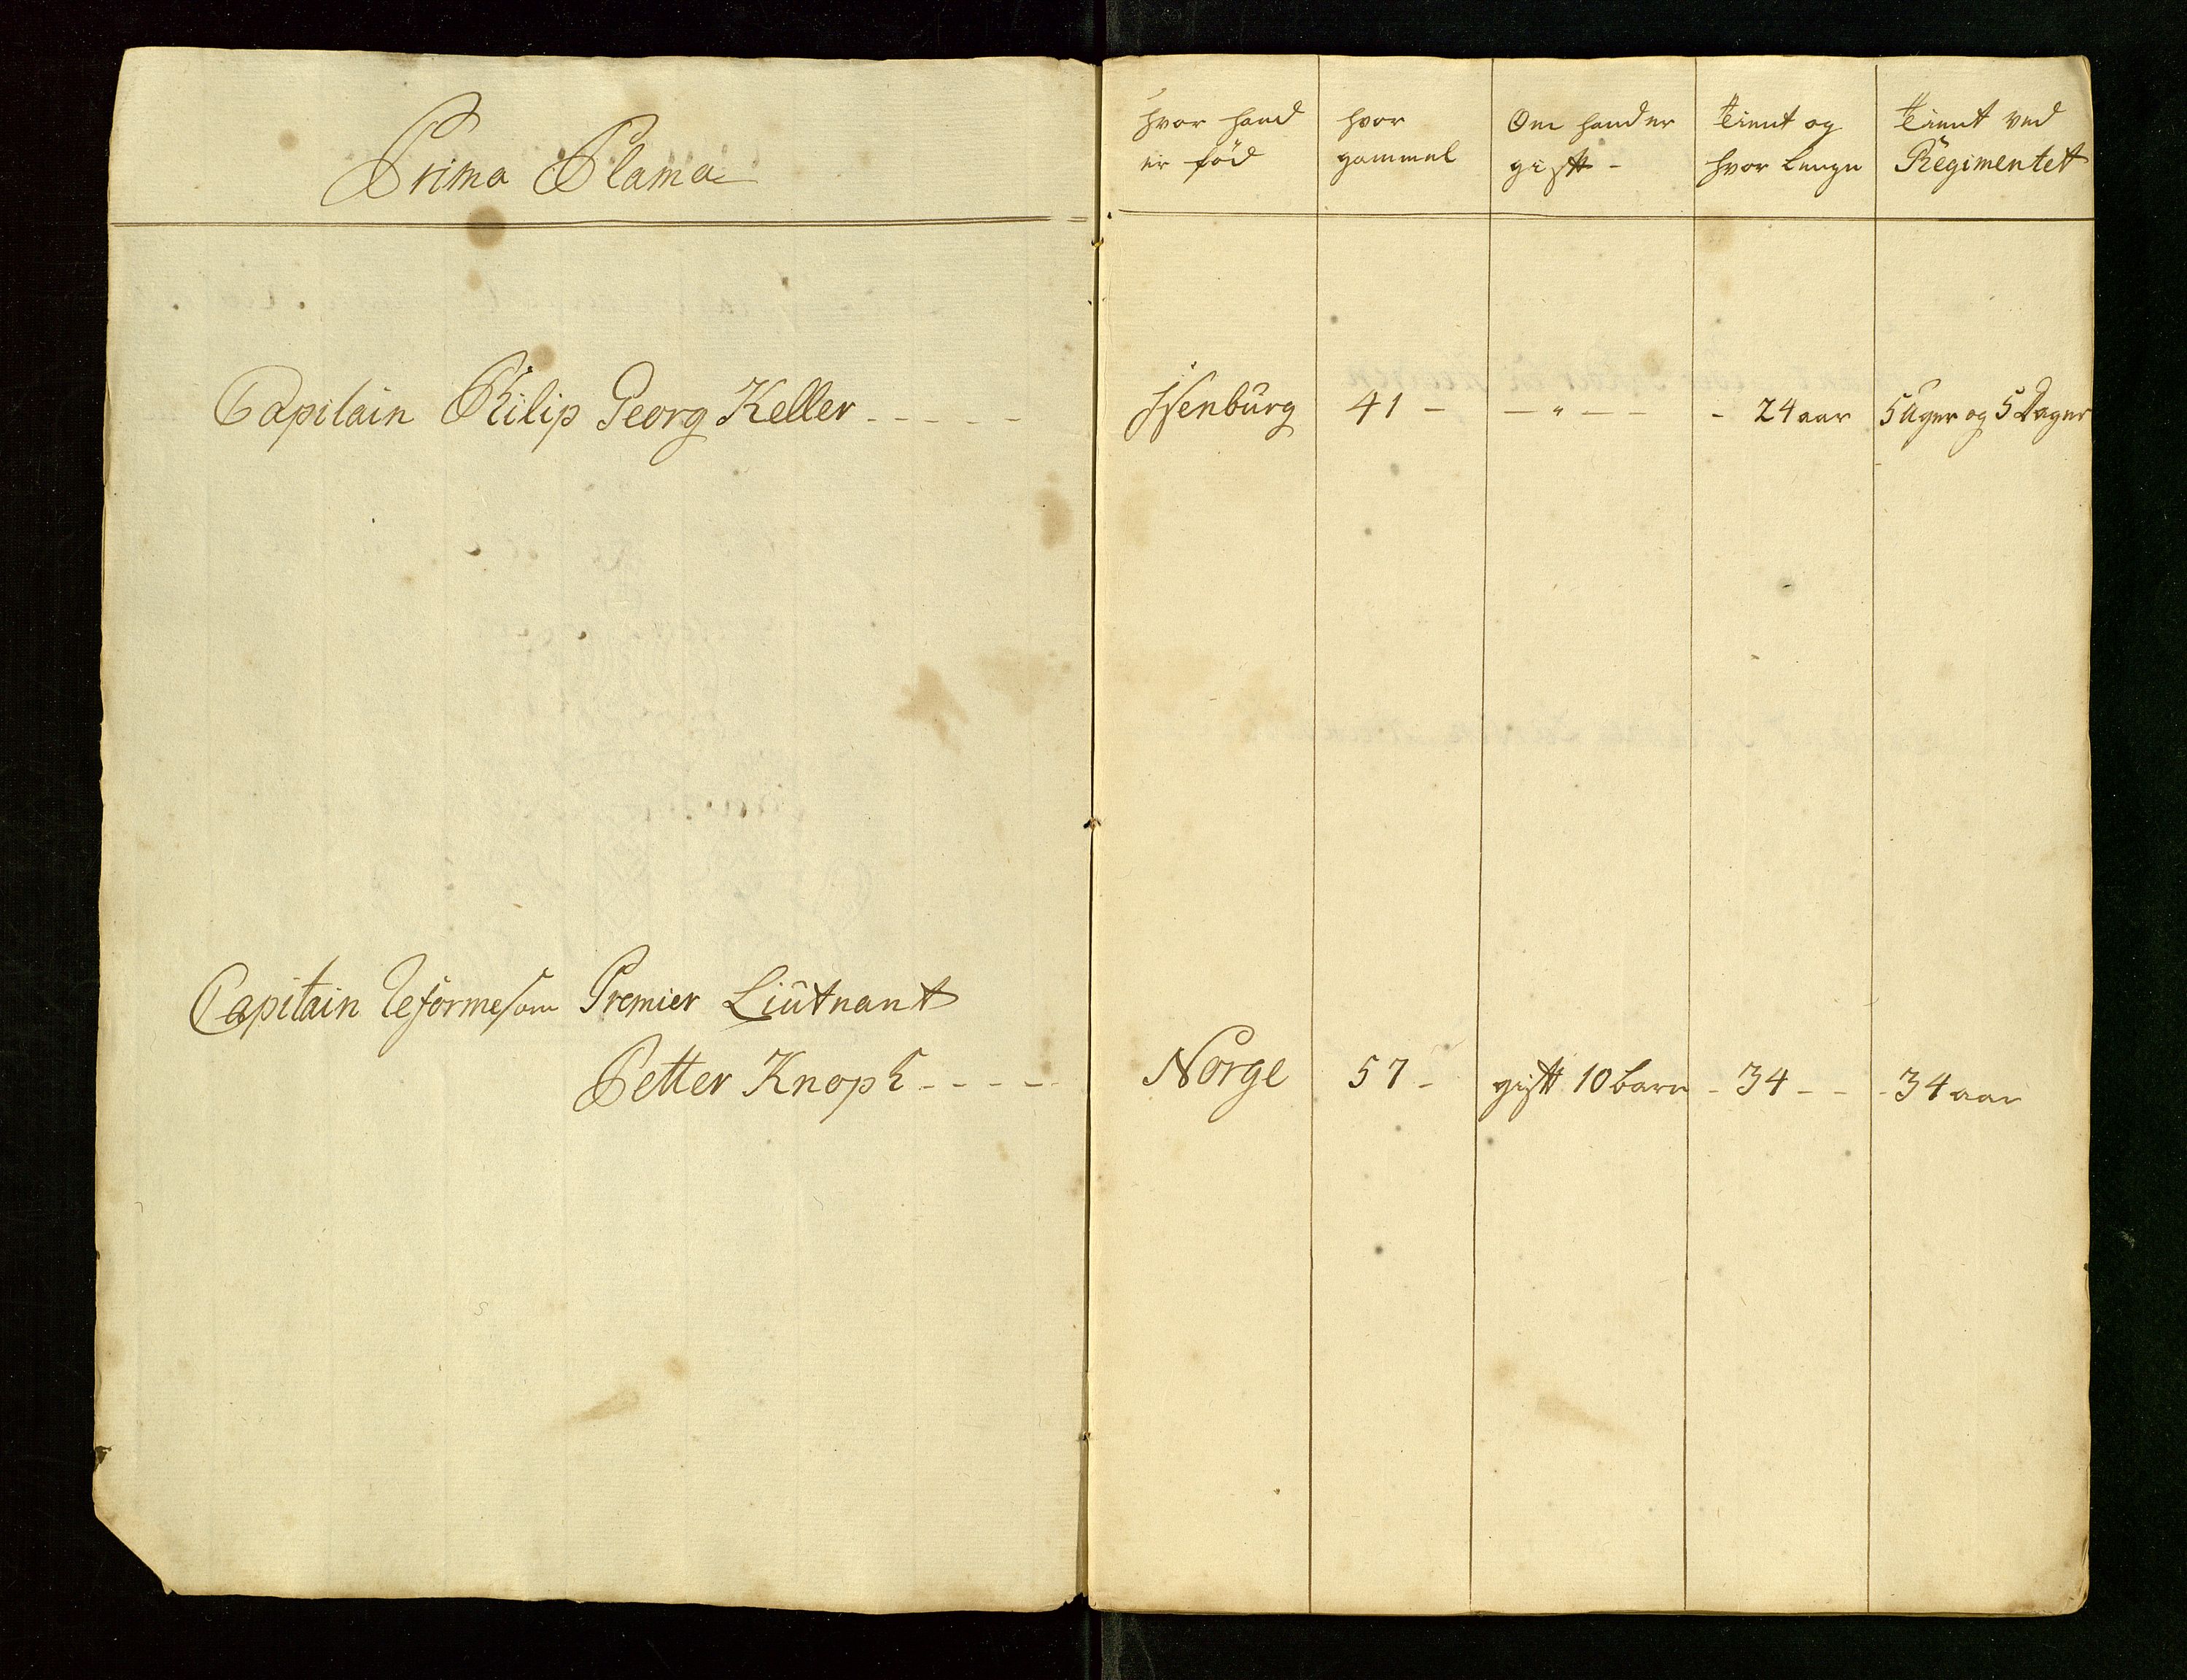 Prima Plama
hvor hand er fød
hvor gammel
Om hand er gift -
tient og hvor lenge
tient ved Regimentet
Capitain Philip Georg Keller - - - - -
Isenburg
41 -
- " - -
- 24 aar
5 Uger og 5 Dager
Capitain reforme som Premier Liutnant
Petter Knoph - - - - -
Norge
57 -
gift 10 barn
- 34 - -
- 34 aar